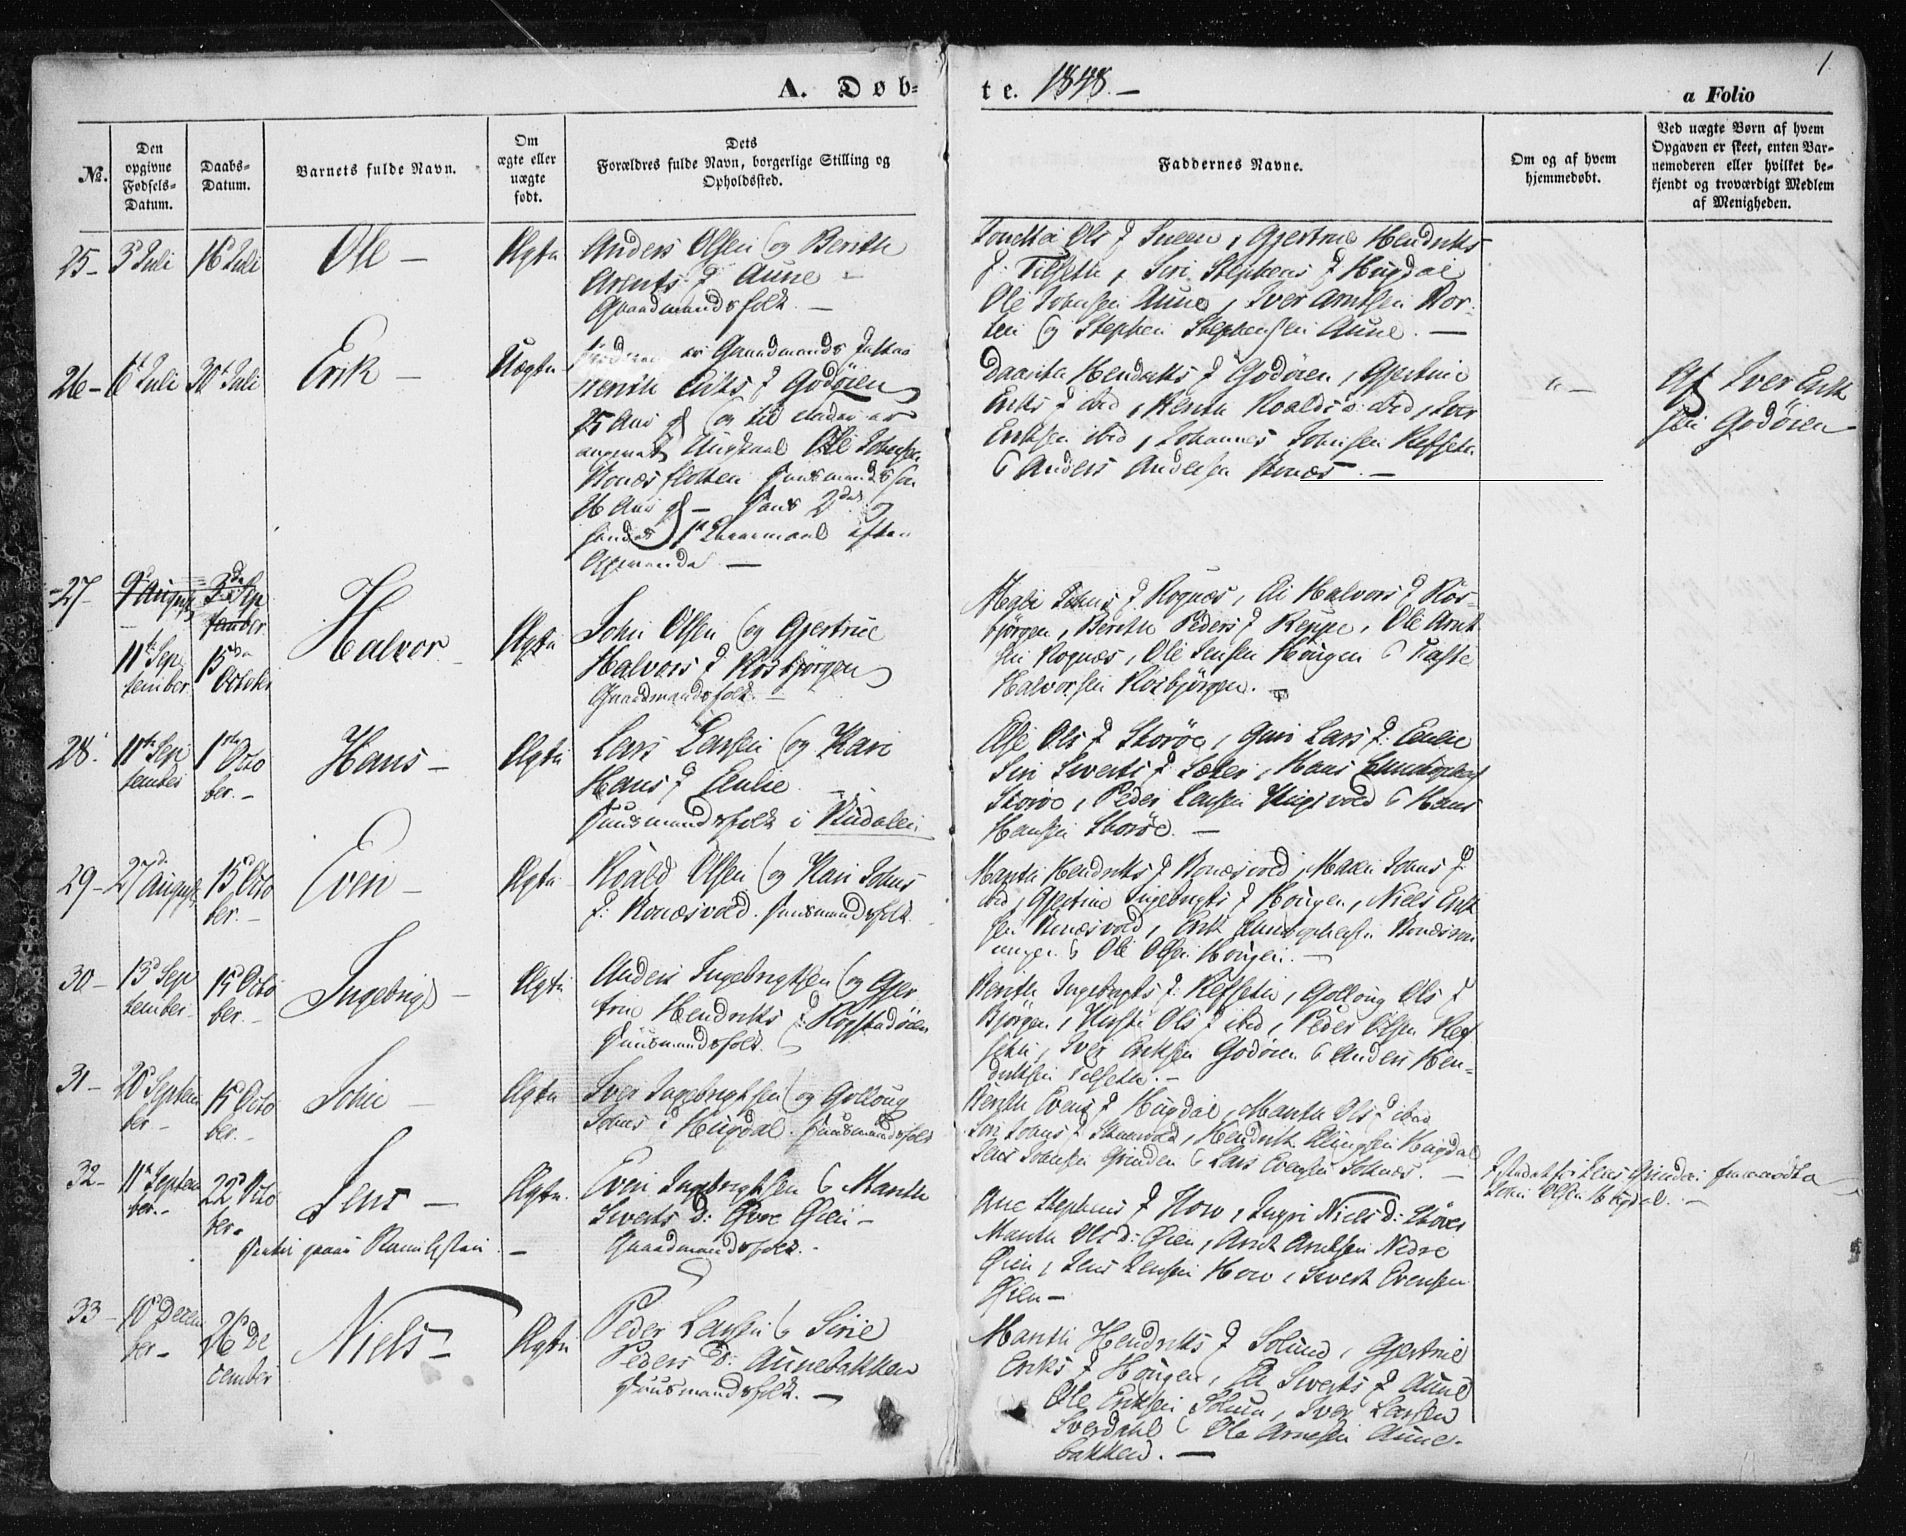 A. Døb-
te. 1848. —
1.
a Folio
No.
Den opgivne Fødsels-Datum.
Daabs-Datum.
Barnets fulde Navn.
Om ægte eller uægte født.
Dets Forældres fulde Navn, borgerlige Stilling og Opholdssted.
Faddernes Navne.
Om og af hvem hjemmedøbt.
Ved uægte Børn af hvem Opgaven er skeet, enten Barnemoderen eller hvilket bekjendt og troværdigt Medlem af Menigheden.
25 – 3d Juli 16d Juli Ole — Ægte
Anders Olsen og Berith
Arents d Aune
Gaardmandsfolk. —
Ols d Sneen, Gjertrue Hendriks
d: Tilseth, Siri Stephens d Hugdal
Ole Johnsen Aune, Iver Arntsen Kor-
ten og Stephen Stephensen Aune. —
26 – 6t Juli 30t Juli Erik — Uægte
Gaardmands
Eriks d Godøren
25 Aar gl og til
Ungkarl Ole Johnsen
Huusmandssøn
26 Aar gl —
Hendriks d Godøren, Gjertrue
Eriks d ibid, Berith Roalds d: ibid, Iver
Eriksen ibid, Johannes Johnsen Refseth
& Anders Andersen Bonæs. —
" —
Af Iver Erik
sen Godøren
27 – 9d August 3die Sep
tember
11te Sep
tember
15de
October
Halvor Ægte
John Olsen og Gjertrue
Halvors d Rosbjørgen
Gaardmandsfolk. —
Johns d Rognæs, Eli Halvors d Ros-
bjørgen, Berith Peders d Reppe, Ole Arnt
sen Rognæs, Ole Jensen Hougen &
Halvorsen Rosbjørgen.
28. 11te Sep
tember
1ste Octo
ber. –
Hans — Ægte
Lars Larsen og Kari
Hans d Enlie.
Huusmandsfolk i Budalen
Else Ols d Storøe, Guri Lars d: Enlie
Siri Siverts d: Sæter, Hans
Storøe, Peder Larsen & Hans
Hansen Storøe. —
29 – 27de
August
15d Octo
ber. –
Even — Ægte
Roald Olsen og Kari Johns
d: Bonæsvold. Huusmandsfolk.
Marith Hendriks d Bonæsvold, Maren Johns d:
ibid, Gjertine Ingebrigts d Hougen, Niels Erik
sen Bonæsvold, Erik
& Ole Olsen Hougen. —
30 – 13d Sep
tember
15d Octo
ber. –
Ingebrigt — Ægte
Anders Ingebrigtsen og Gjer
true Hendriks d: Rogstadøien
Huusmandsfolk.
Berith Ingebrigts d: Refseth, Gollaug Ols d
Bjørgen, Kirsti Ols d ibid, Peder Olsen Ref
seth, Iver Eriksen Godøren & Anders Hen-
driksen Tilseth. –
31 – 20d Septem
ber –
15d Octo
ber. –
John — Ægte
Iver Ingebrigtsen og Gollaug
Johns d Hugdal. Huusmandsfolk
Berith Evens d Hugdal, Marith Ols d ibid
Siri Johns d, Hendrik Ellingsen Hugdal
Jens Johnsen Grinden & Lars Evensen Soknæs. —
Jens Grinden
John Olsen Hugdal. —
32 – 11te Septem
ber. –
22d Octo
ber.
Jens — Ægte.
Even Ingebrigtsen & Marith
Siverts d: Øvre Øien —
Gaardmandsfolk. –
Ane Stephens d How, Ingri Niels d: Støren
Marith Ols d: Øien, Arnt Arntsen Nedre
Øien, Jens Jensen How, Sivert Evensen
Øien —
33 – 10d Decem
ber –
26d De
cember
Niels — Ægte
Peder Larsen & Sirie
Peders d: Aunebakken
Huusmandsfolk. —
Marith Hendriks d Solund, Gjertrue
Eriks d Hougen, Eli Siverts d Aune
Ole Eriksen Solum, Iver Larsen
Sverdahl & Ole Arnesen Aune-
bakken. —